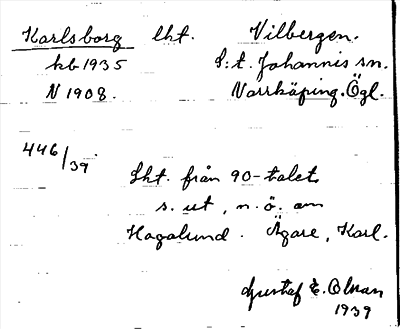 Karlsborg lht. Vilbergen.
kb 1935 S:t. Johannis sn.
N 1908. Norrköping. Ögl.
446/39
Lht. från 90-talet
s. ut, n. ö. om
Hagalund. Ägare, Karl.
Gustaf E. Olsson
1939